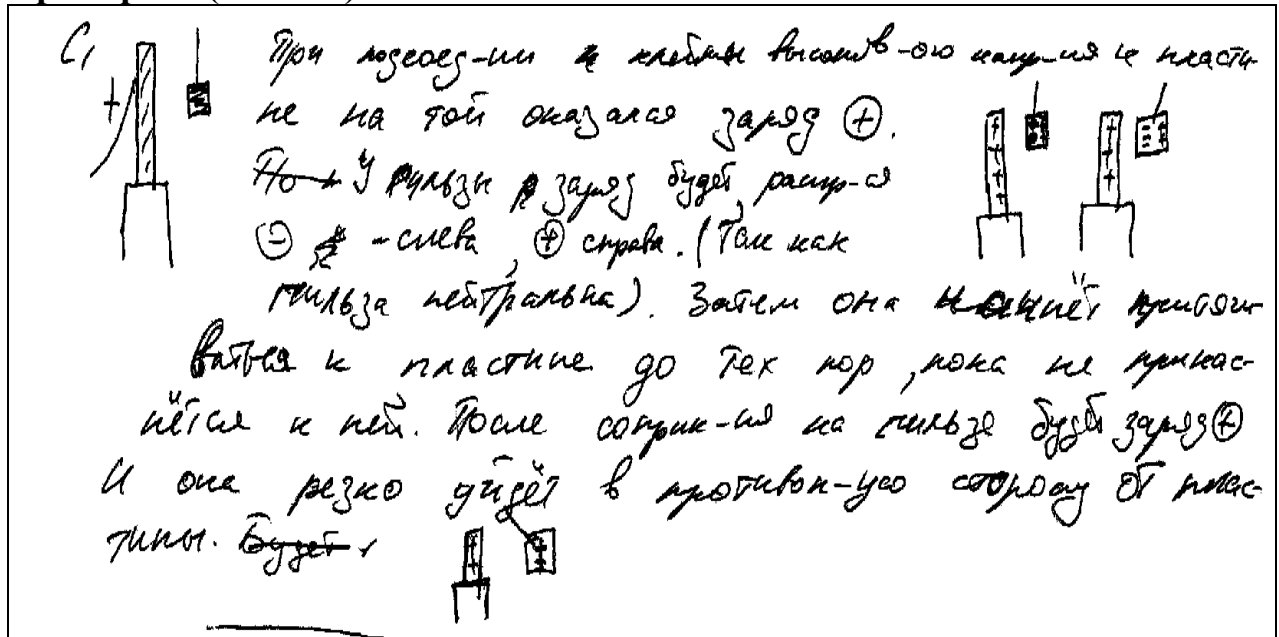 С1 При подсоед-нии к клемме высоков-ого напр-ия к пласти-
+ не на той оказался заряд ⊕.
У гильзы заряд будет распр-ся
⊖ - слева, ⊕ справа. (Так как
гильза нейтральна). Затем она начнёт притяги-
ваться к пластине до тех пор, пока не прикас-
нётся к ней. После соприк-ия на гильзе будет заряд ⊕
И она резко уйдёт в противоп-ую сторону от плас-
тины. Будет